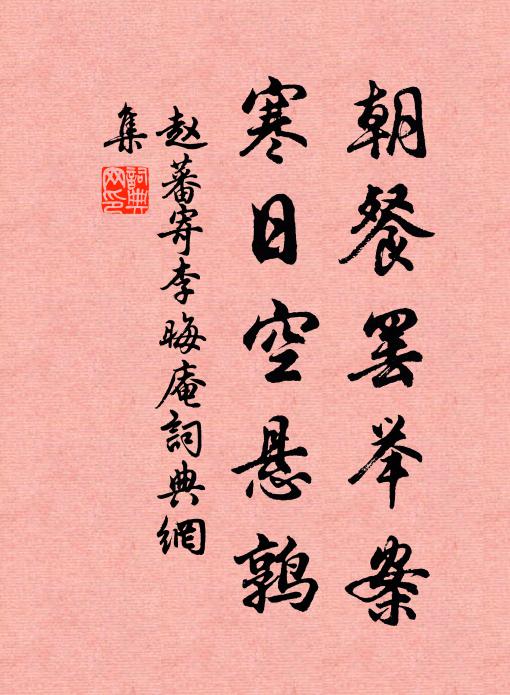 朝餐罢举案
寒日空悬鹑
赵蕃寄李晦庵詞典網
集
詞典網印